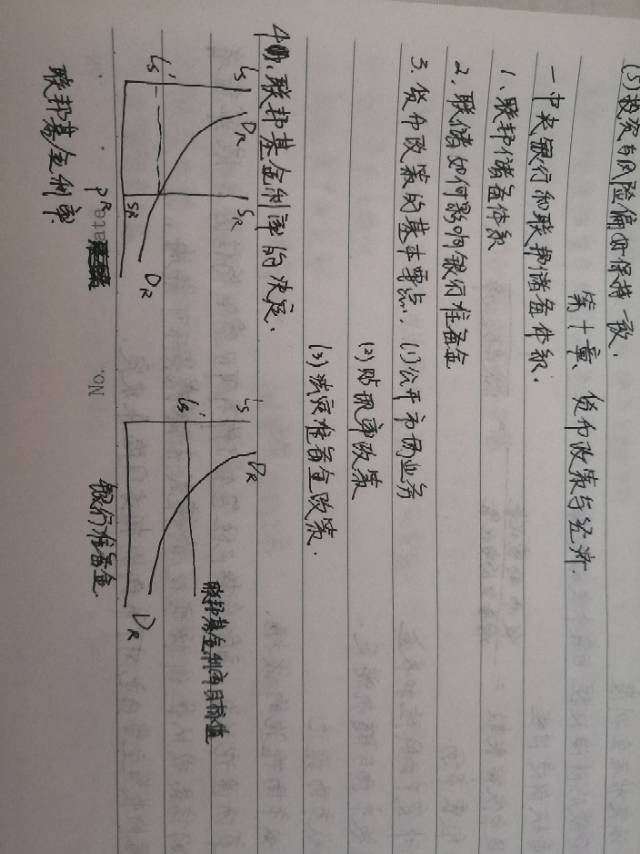 (5)投资与风险偏好保持一致.
第十章、货币政策与经济.
一 中央银行和联邦储备体系.
1、联邦储备体系
2. 联储如何影响银行准备金
3. 货币政策的基本要点. (1)公开市场业务
(2)贴现率政策
(3)法定准备金政策.
4、联邦基金利率的决定.
is
DR
SR
is'
SR
DR
联邦基金利率.
is
DR
is'
联邦基金利率目标值
DR
银行准备金.
No.